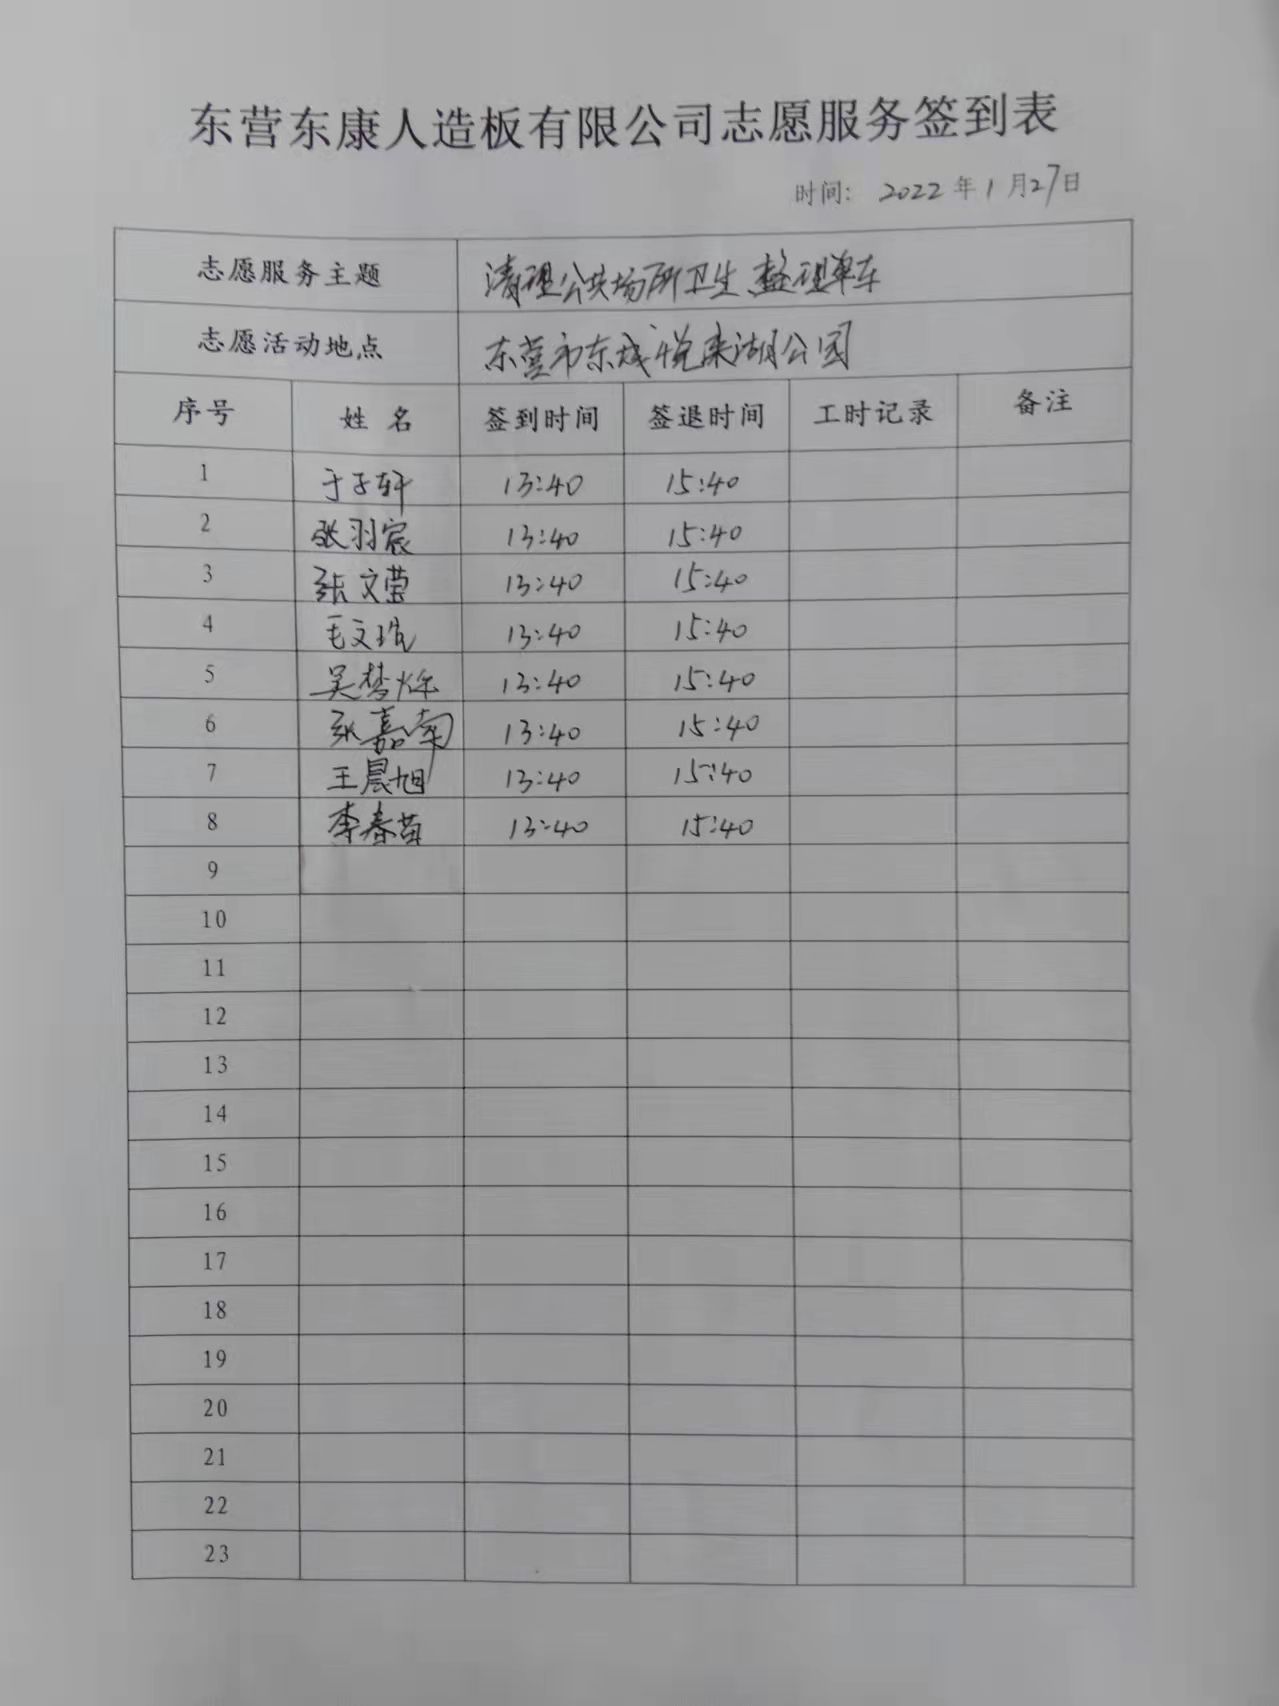 东营东康人造板有限公司志愿服务签到表
时间: 2022年1月27日
志愿服务主题 清理公共场所卫生 整理单车
志愿活动地点 东营市东城悦来湖公园
序号 姓名 签到时间 签退时间 工时记录 备注
1 于子轩 13:40 15:40
2 张羽宸 13:40 15:40
3 张文莹 13:40 15:40
4 毛文 13:40 15:40
5 吴梦烁 13:40 15:40
6 张嘉南 13:40 15:40
7 王晨旭 13:40 15:40
8 李春苗 13:40 15:40
9
10
11
12
13
14
15
16
17
18
19
20
21
22
23